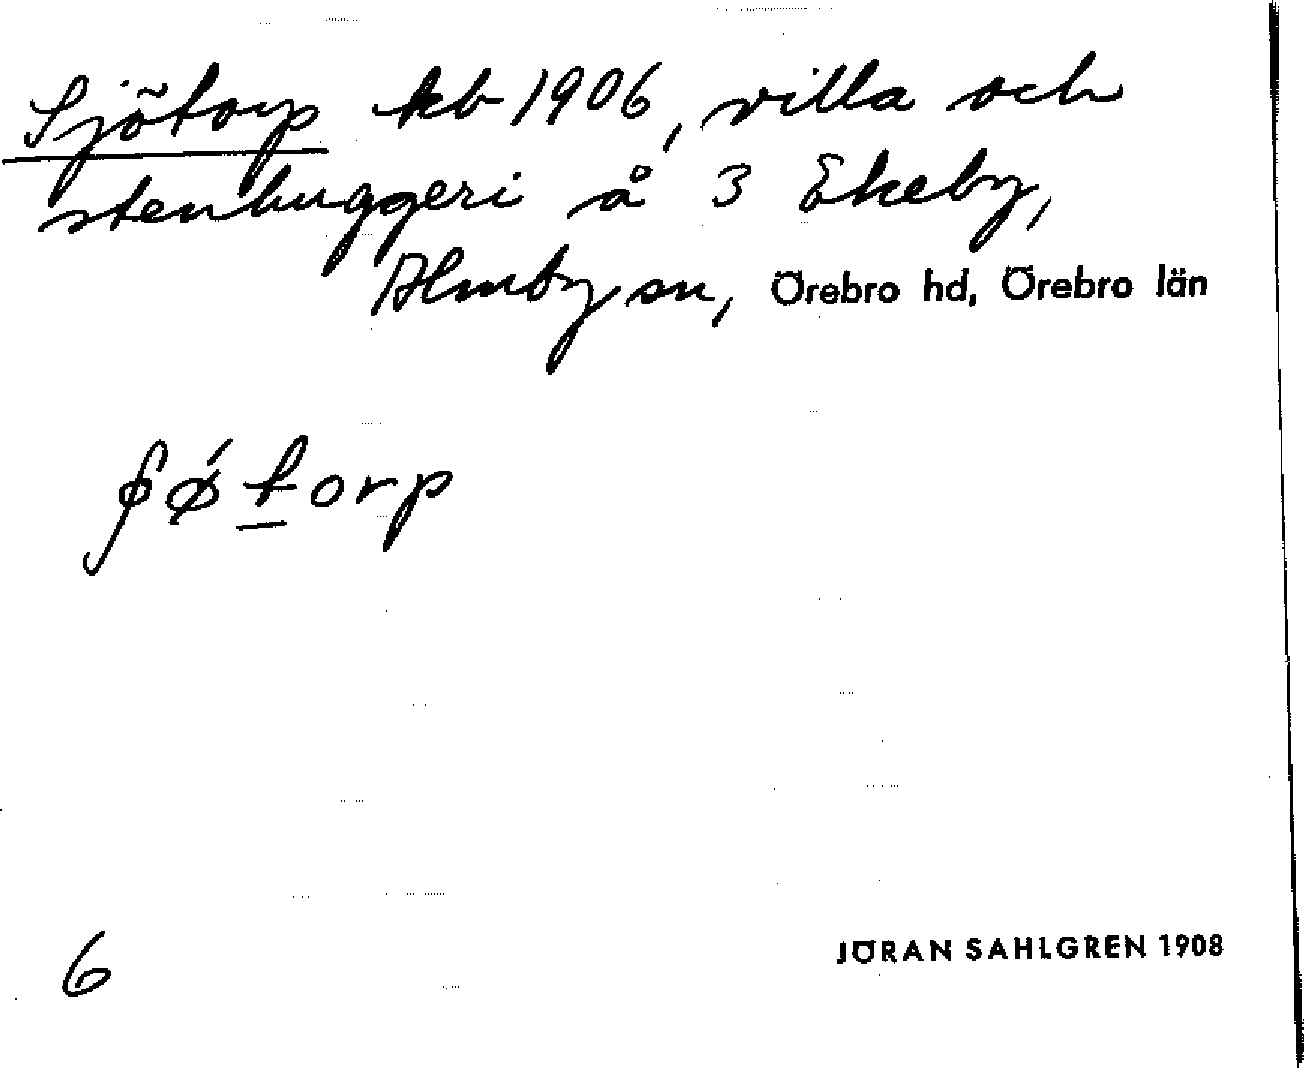 Sjötorp kb 1906, villa och
stenhuggeri å 3 Ekeby,
Almby sn, Örebro hd, Örebro län
ʃǿtorp
6
JÖRAN SAHLGREN 1908